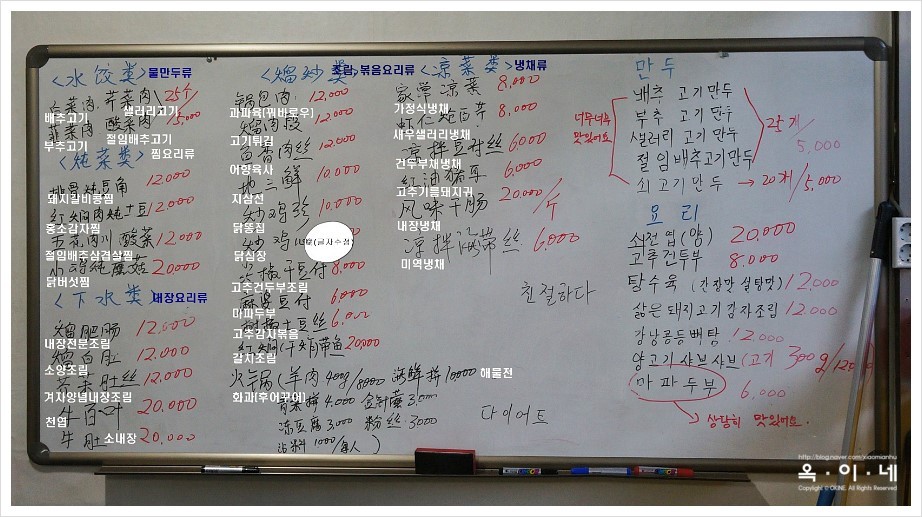 <水饺类> 물만두류
白菜肉 芹菜肉 25个
배추고기 샐러리고기
韭菜肉 酸菜肉 5,000
부추고기 절임배추고기
<炖菜类> 찜요리류
排骨炖豆角 12,000
돼지갈비콩찜
红焖肉炖土豆 12,000
홍소감자찜
五花肉川酸菜 12,000
절임배추삼겹살찜
小鸡炖蘑菇 20,000
닭버섯찜
<下水类> 내장요리류
熘肥肠 12,000
내장전문조림
熘白肚 12,000
소양조림
芥末肚丝 12,000
겨자양념내장조림
牛百叶 20,000
천엽
牛肚 소내장 20,000
<熘炒类> 조림,볶음요리류
锅包肉 12,000
과파육[꿔바로우]
熘肉段 12,000
고기튀김
鱼香肉丝 12,000
어향육사
地三鲜 10,000
지삼선
炒鸡珍 10,000
닭똥집
炒鸡心
닭심장
尖椒干豆付 8,000
고추건두부조림
麻婆豆付 6,000
마파두부
尖椒土豆丝 6,000
고추감자볶음
红焖(干炸)带鱼 20,000
갈치조림
火锅(羊肉 400g/8000 海鲜拼 10000 해물전
화과(후어꾸어)
青菜拼 4,000 金针蘑 3,000
冻豆腐 3000 粉丝 3000
沾料 1000/每人 )
<凉菜类> 냉채류
家常凉菜 8,000
가정식냉채
虾仁炝百芹 8,000
새우샐러리냉채
凉拌豆付丝 6000
건두부채냉채
红油猪耳 6,000
고추기름돼지귀
风味干肠 20,000/个
내장냉채
凉拌海带丝 6,000
미역냉채
친절하다
다이어트
만두
배추 고기만두
부추 고기 만두
샐러리 고기 만두
절임배추고기만두
너무너무 맛있어요
25개 5,000
쇠고기만두 → 20개/5,000
요리
쇠천엽(양) 20,000
고추건두부 8.000
탕수육 (간장맛 설탕맛) 12,000
삶은 돼지고기감자조림 12,000
강낭콩등뼈탕 12.000
양고기샤브샤브(고기 300g/12000
마파두부 6,000
→ 상당히 맛있어요.
http://blog.naver.com/xiaomianhu
옥·이·네
Copyright © OKINE. All Rights Reserved